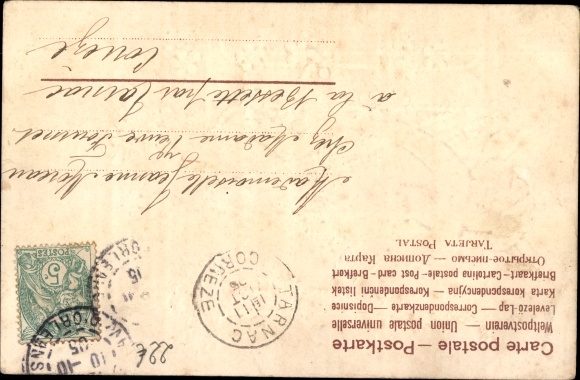 Carte postale — Postkarte
Weltpostverein — Union postale universelle
Levelező-Lap — Correspondenzkarte — Dopisnice
Karta korespondencyjna — Korespondenční listek
Briefkaart — Cartolina postale — Post card — Brefkort
Открытое-письмо — Дописна Карта
TARJETA POSTAL
Mademoiselle Jeanne Moreau
chez Madame Veuve Fournet
à la Bessette par Tarnac
Corrèze
TARNAC
CORREZE
POSTES
5
22€